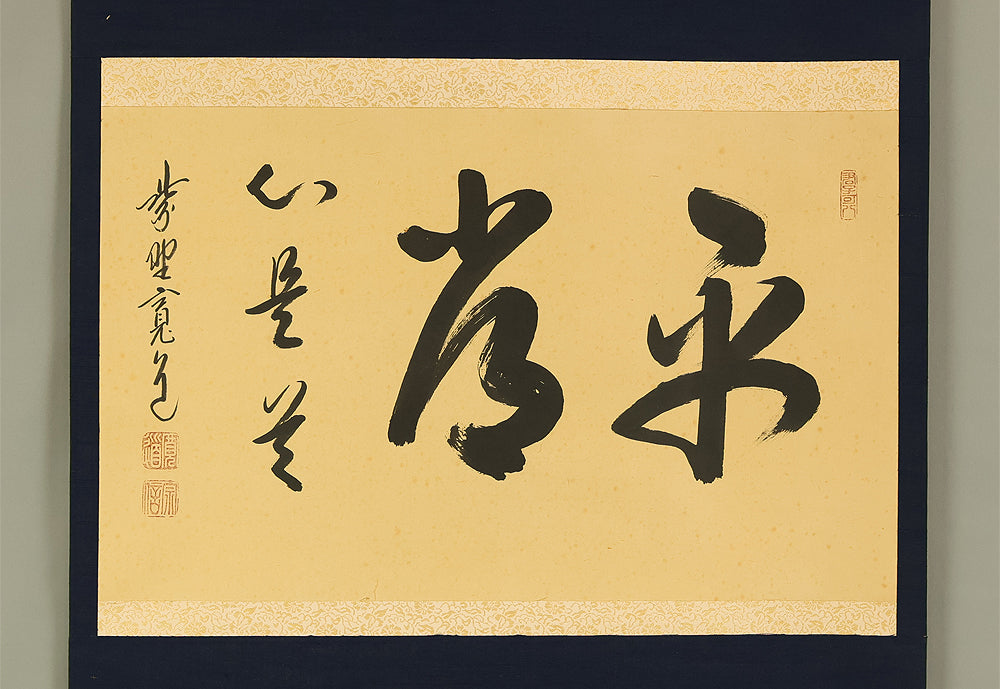 平常
心是道
紫野寛道